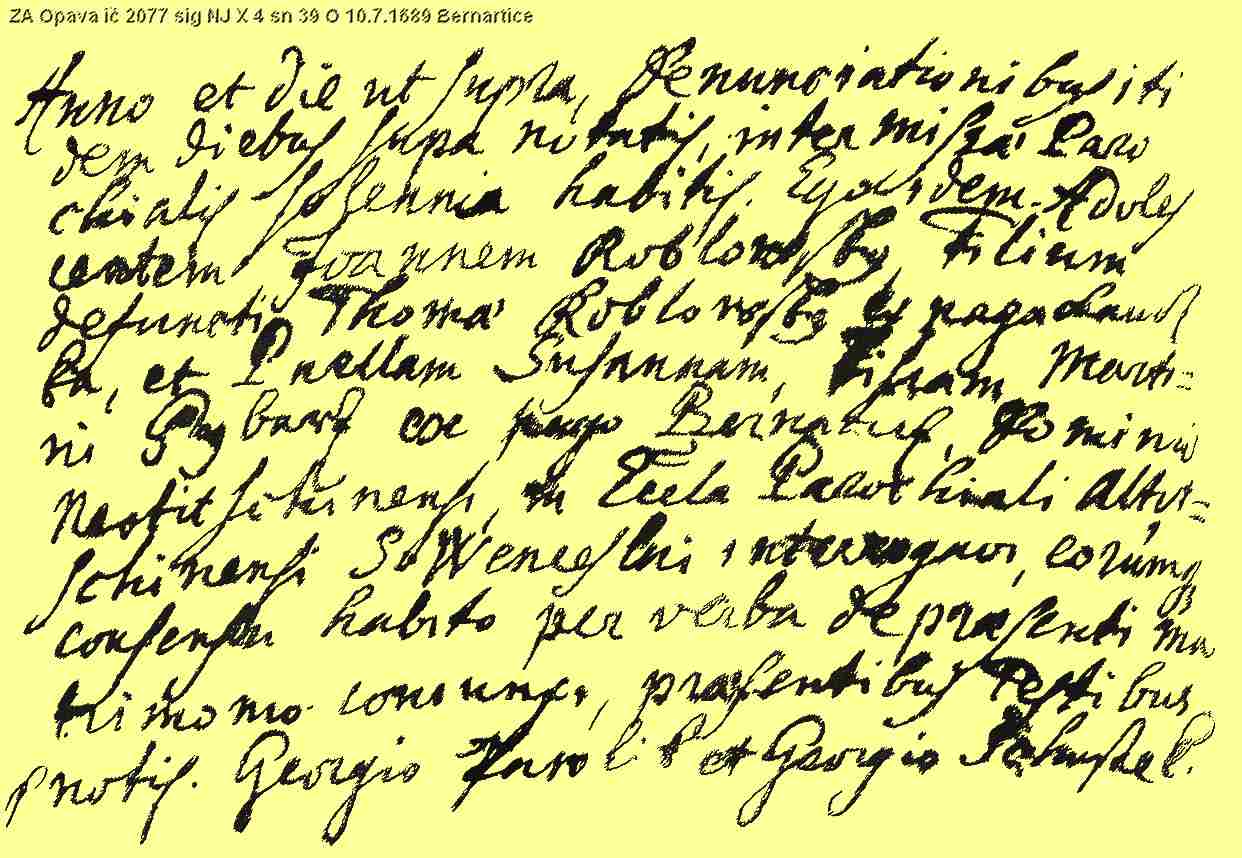 ZA Opava ič 2077 sig NJ X 4 sn 39 O 10.7.1689 Bernartice
Anno et die ut supra, Denunciationibus iti
dem diebus supa notatis, inter missa Paro
chialis solennia habitis. Ego idem Adoles
centem Joannem Koblowsky, Filium
defuncti Thoma Koblowsky ex pago
ka, et Puellam Susannam, Filiam Marti-
ni coe pago Bernatic, Domini
Neotitscheinensi, in Eccla Parochiali Altit-
scheinensi S. Wenceslai interrogavi, eorumq
consensu habito per verba de praesenti ma
trimonio coniunxi, praesentibus Testibus
notis. Georgio et Georgio